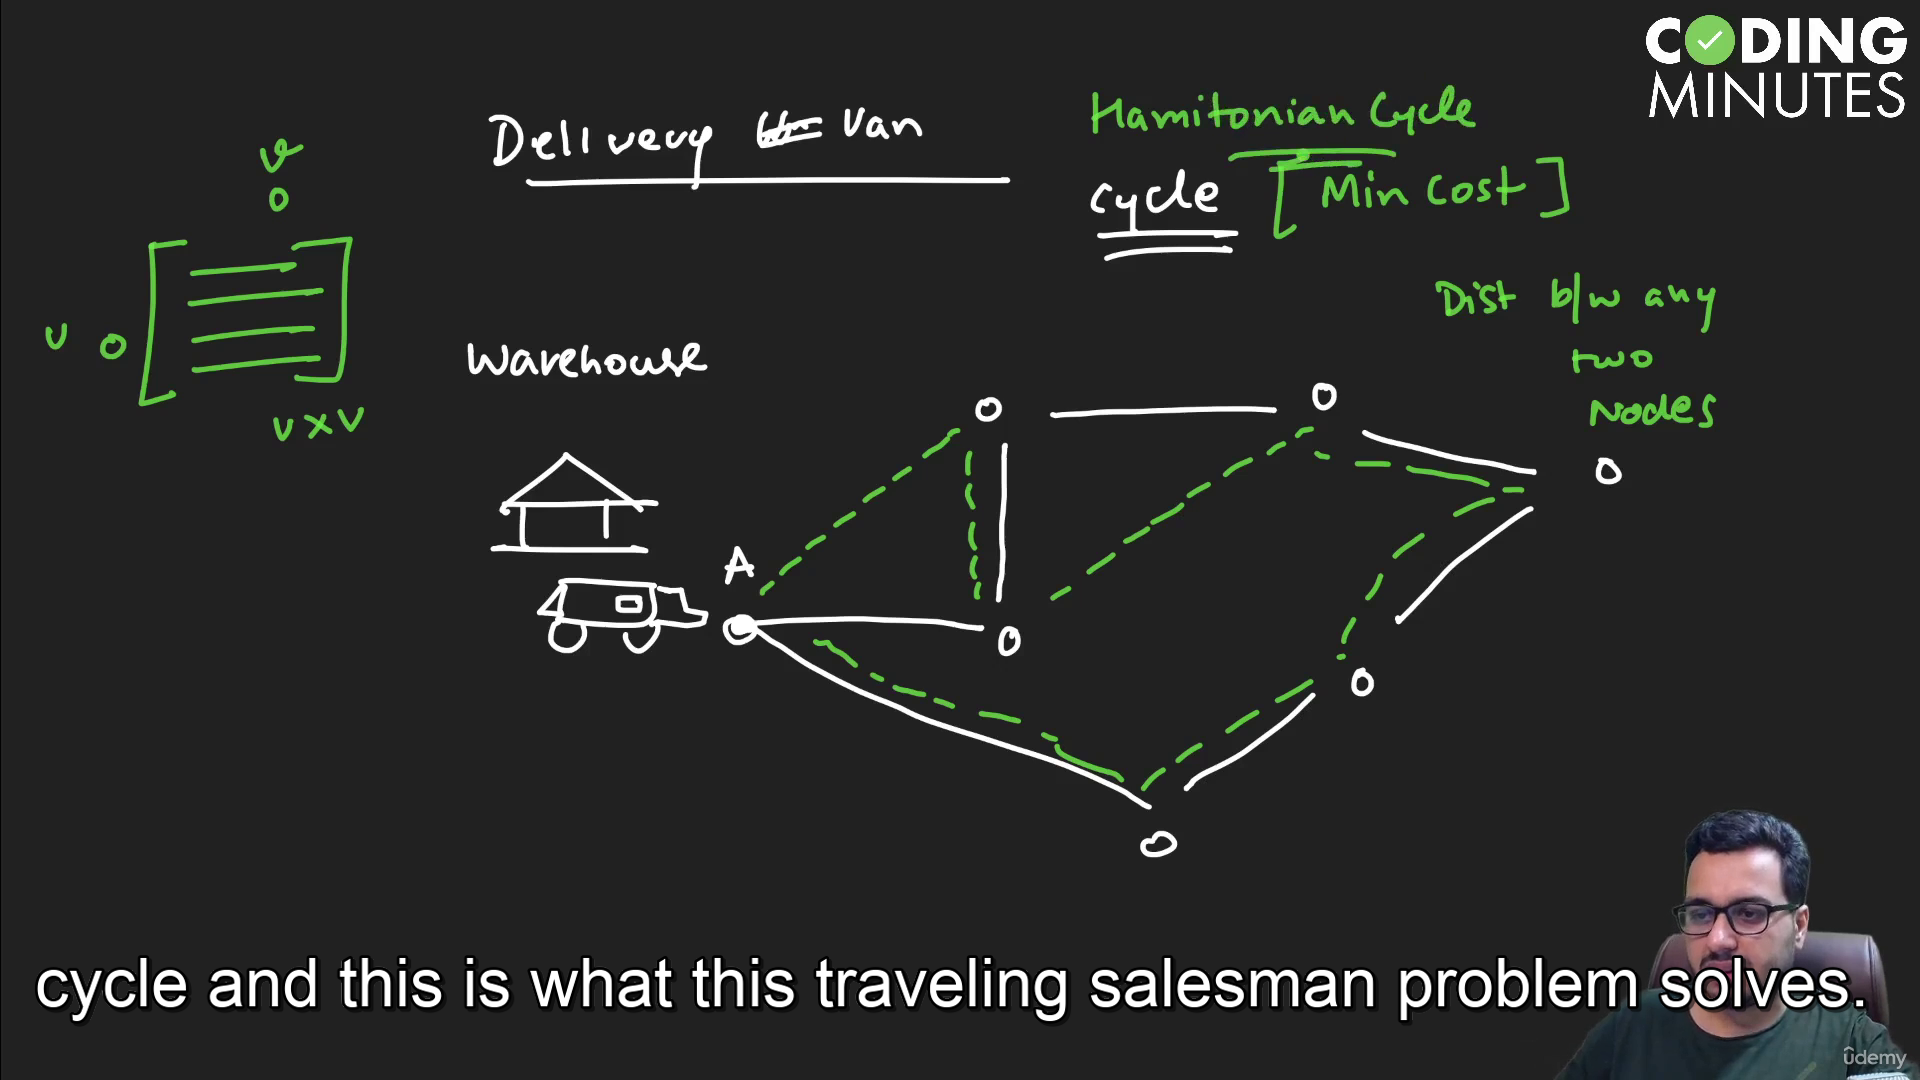 CODING
MINUTES
Delivery Van
Hamitonian Cycle
cycle [Min Cost]
v
0
v 0
v x v
Dist b/w any
two
Nodes
Warehouse
A
cycle and this is what this traveling salesman problem solves.
ûdemy